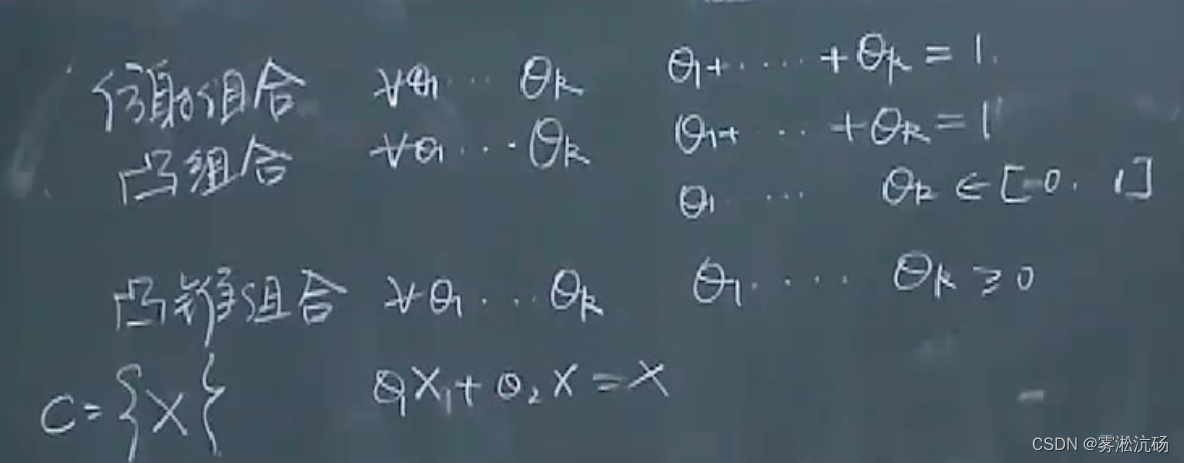 仿射组合 ∀θ₁ ⋯ θₖ θ₁+ ⋯ +θₖ = 1.
凸组合 ∀θ₁ ⋯ θₖ θ₁+ ⋯ +θₖ = 1
θ₁ ⋯ θₖ ∈ [0, 1]
凸锥组合 ∀θ₁ ⋯ θₖ θ₁ ⋯ θₖ ≥ 0
C = {X} θ₁X₁ + θ₂X = X
CSDN @雾淞沆砀